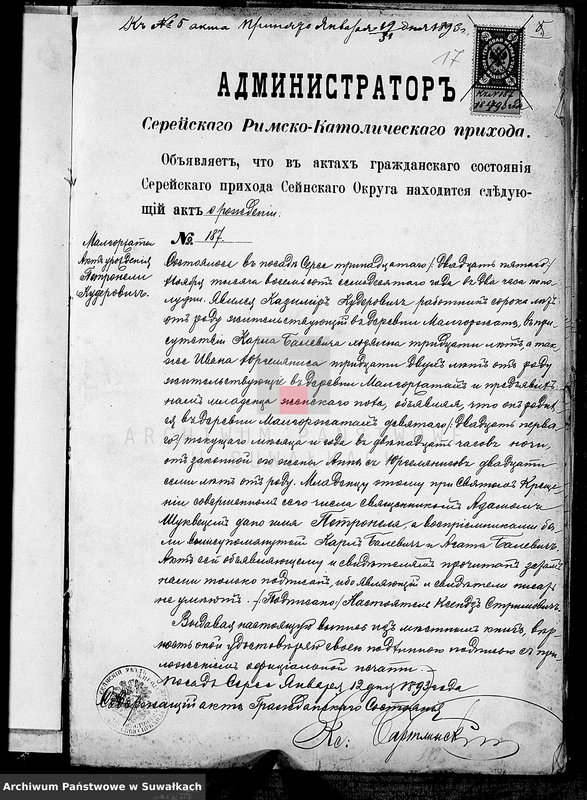 Къ № 5 акта принято Января 19/31 дня 1893 г.
17
5
Къ № 187
1893 года
АДМИНИСТРАТОРЪ
Серейскаго Римско-Католическаго прихода.
Объявляетъ, что въ актахъ гражданскаго состоянія
Серейскаго прихода Сейнскаго Округа находится слѣдую-
щій актъ о рожденіи:
№ 187
Малгоржаты
Актъ урожденія
Петронели
Кудеровичъ.
Состоялось въ посадѣ Серее тринадцатаго /: Двадцать пятаго:/
Ноября тысяча восемьсотъ семьдесятаго года въ два часа по по-
лудни. Явился Казиміръ Кудеровичъ работникъ сорока лѣтъ
отъ роду жительствующій въ деревни Малгоржатахъ, въ при-
сутствіи Карла Балевича тридцати лѣтъ, а так-
же Ивана тридцати двухъ лѣтъ отъ роду
жительствующіе въ деревни Малгоржатахъ и предъявилъ
намъ младенца женскаго пола, объявляя, что онъ родил-
ся въ деревни Малгоржатахъ девятаго /: Двадцать перва-
го:/ текущаго мѣсяца и года въ двѣнадцать часовъ ночи,
отъ законной его жены Анны изъ двадцати
семи лѣтъ отъ роду. Младенцу этому при Святомъ Креще-
ніи совершенномъ сего числа священникомъ Адамомъ
дано имя Петронеля, а воспріемниками бы-
ли вышеупомянутый Карлъ Балевичъ и Агата Балевичъ.
Актъ сей объявляющему и свидѣтелямъ прочитанъ
нами только подписанъ, ибо объявляющій и свидѣтели писать
не умѣютъ. /: Подписано:/ Настоятель Ксендзъ
Выдавая настоящую выпись изъ мѣстныхъ книгъ, вѣр-
ность оной удостовѣряю своею подлинною подписью съ при-
ложеніемъ официальной печати.
Посадъ Серее Января 12 дня 1893 года
Содержащій актъ Гражданскаго Состоянія
Кс:
ARCHIWUM PAŃSTWOWE
SUWAŁKI
Archiwum Państwowe w Suwałkach